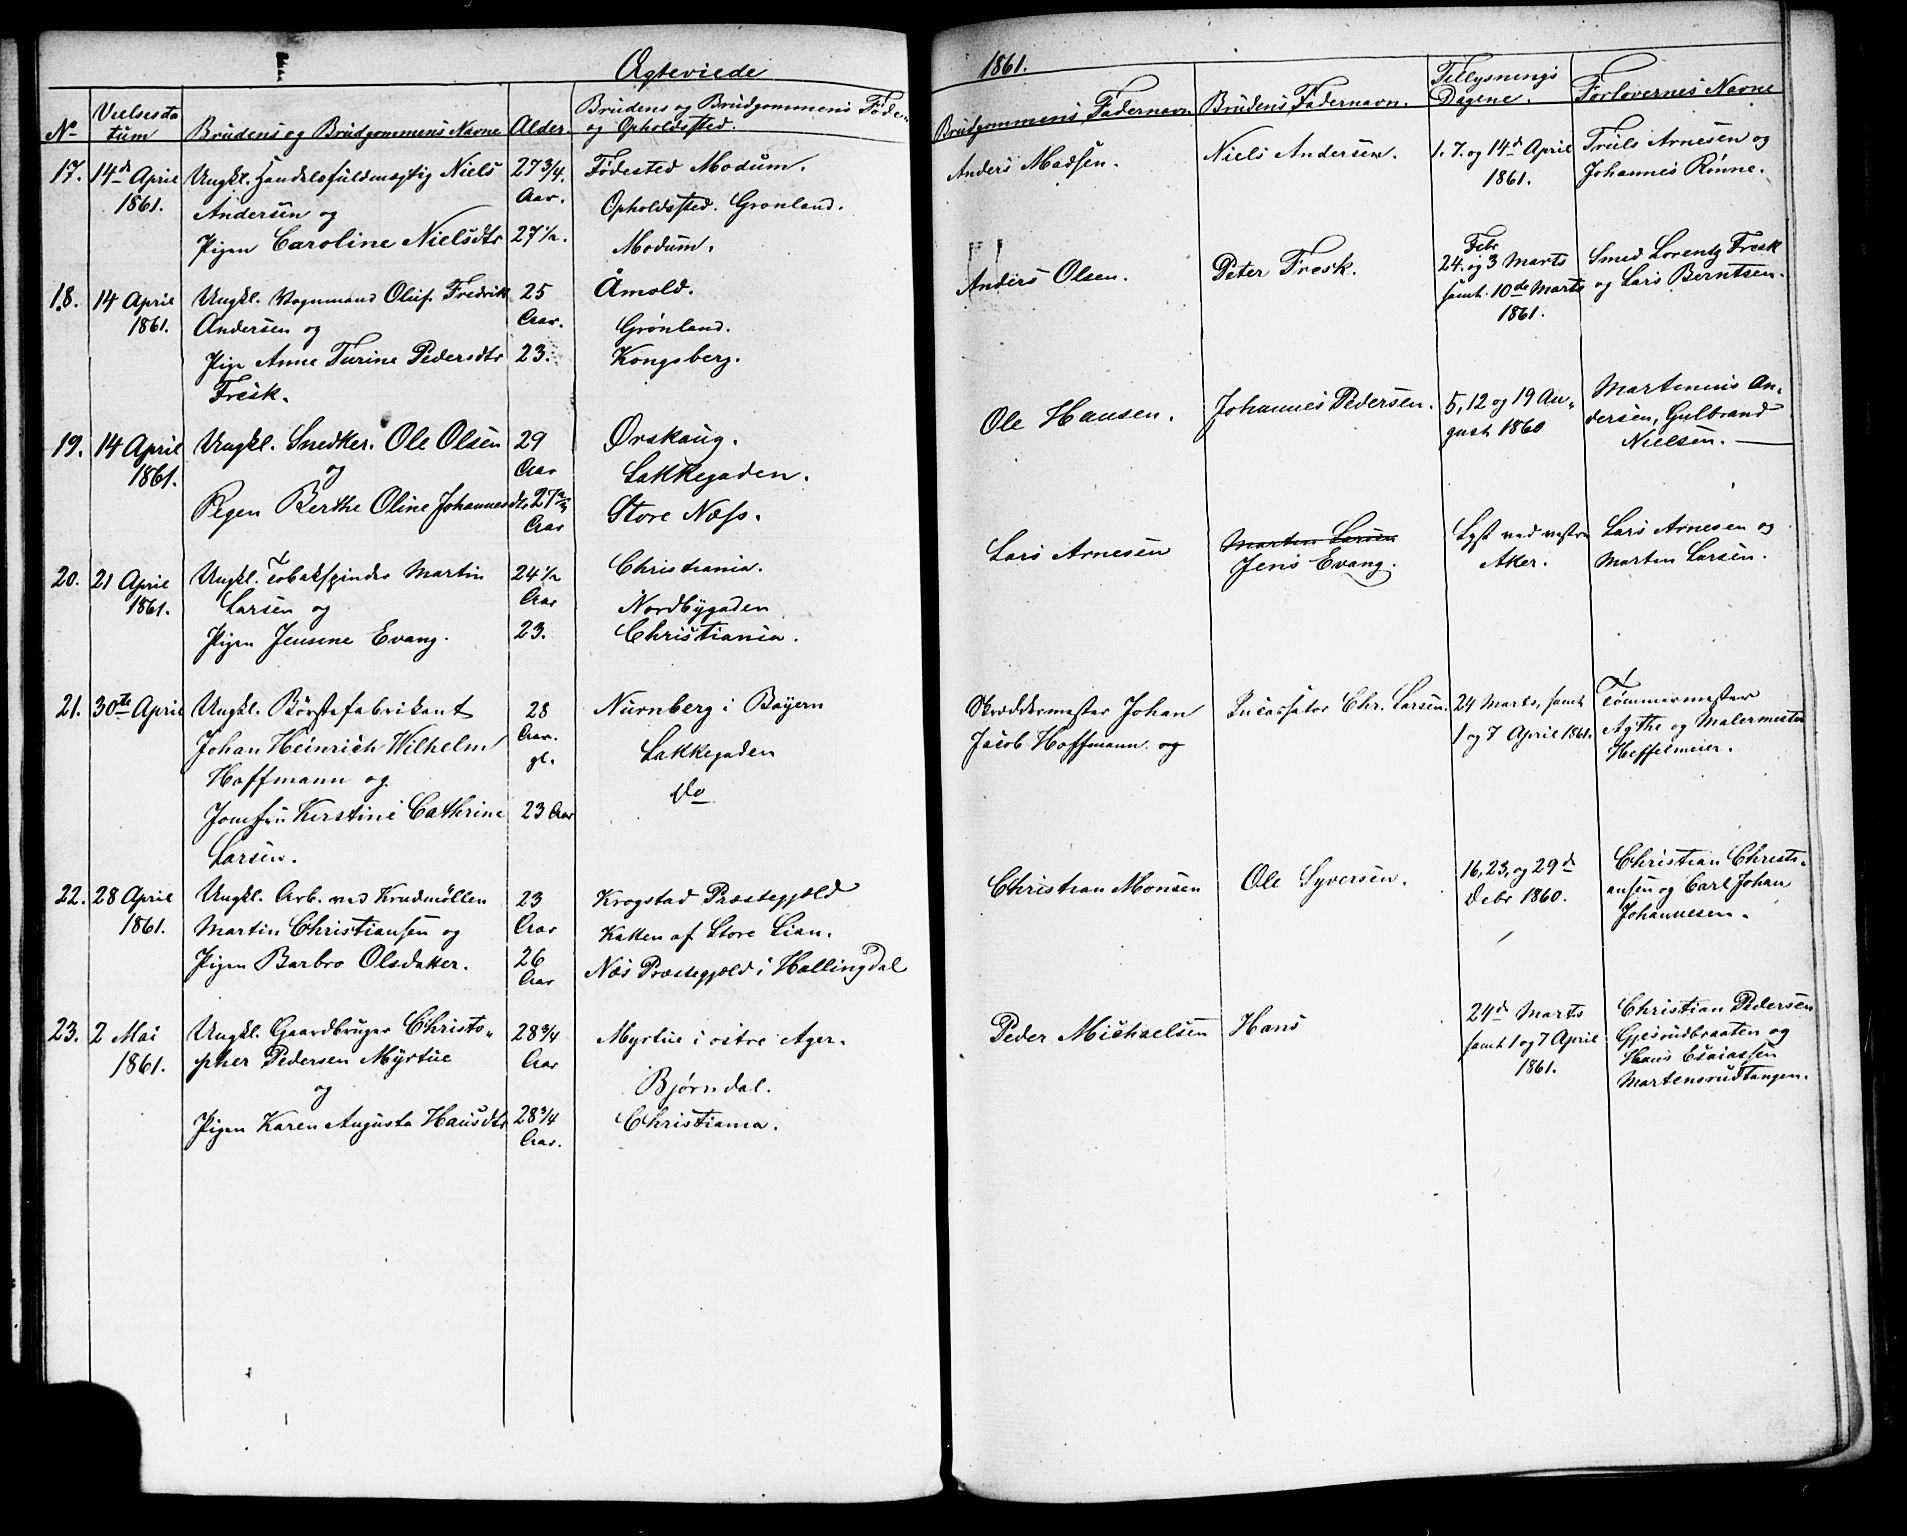 Ægteviede
1861.
No
Vielsesda
tum
Brudens og Brudgommens Navne
Alder.
Brudens og Brudgommens Føde-
og Opholdssted.
Brudgommens Fadernavn.
Brudens Fadernavn.
Tillysnings
Dagene.
Forlovernes Navne
17.
14de April
1861.
Ungkl. Handelsfuldmægtig Niels
Andersen og
Pigen Caroline Nielsdtr
27 3/4.
Aar.
27 1/2.
Fødested Modum.
Opholdssted. Grønland.
Modum.
Anders Madsen.
Niels Andersen.
1. 7. og 14de April
1861.
Truls Arnesen og
Johannes Rønne.
18.
14 April
1861.
Ungkl. Vognmand Oluf Fredrik
Andersen og
Pige Anne Turine Pedersdtr
Fresk.
25
Aar.
23.
Åmold.
Grønland.
Kongsberg.
Anders Olsen.
Peter Fresk.
Febr
24. og 3 Marts
samt. 10de Marts
1861.
Smed Lorentz Fresk
og Lars Berntsen.
19.
14 April
1861.
Ungkl. Snedker. Ole Olsen
og
Pigen Berthe Oline Johannesdtr
29
Aar
27 2/3
Aar
Ørskoug.
Lakkegaden.
Store Næss.
Ole Hansen.
Johannes Pedersen.
5, 12 og 19 Au-
gust 1860
Martenius An-
dersen, Gulbrand
Nielsen.
20.
21 April
1861.
Ungkl. Tobakspinder Martin
Larsen og
Pigen Jensene Evang.
24 1/2
Aar
23.
Christiania.
Nordbygaden
Christiania.
Lars Arnesen
Marten Larsen
Jens Evang.
Lyst ved vestre
Aker.
Lars Arnesen og
Marten Larsen.
21.
30te April
Ungkl. Børstefabrikant
Johan Heinrich Wilhelm
Hoffmann og
Jomfru Kerstine Cathrine
Larsen.
28
Aar.
gl.
23 Aar
Nürnberg i Bayern
Lakkegaden
Do
Skræddermester Johan
Jacob Hoffmann og
Incassator Chr. Larsen.
24 Marts, samt
1 og 7 April 1861.
Tømmermester
Agthe og Malermester
Heffelmeier.
22.
28 April
1861.
Ungkl. Arb. ved Krudmøllen
Martin Christiansen og
Pigen Barbro Olsdatter.
23
Aar
26
Aar
Krogstad Præstegjæld
Katten af Store Lian.
Næs Præstegjæld i Hallingdal
Christian Monsen
Ole Syversen.
16, 23, og 29de
Debr 1860.
Christian Christi-
ansen og Carl Johan
Johannesen.
23.
2 Mai
1861.
Ungkl. Gaardbruger Christo-
pher Pedersen Myrtue
og
Pigen Karen Augusta Hansdtr
28 3/4
Aar
28 3/4
Aar.
Myrtue i østre Ager.
Bjørndal.
Christiania.
Peder Michaelsen
Hans
24de Marts
samt 1 og 7 April
1861.
Christian Pedersen
Gjesrudbraaten og
Hans Esaiassen
Martensrudtangen.